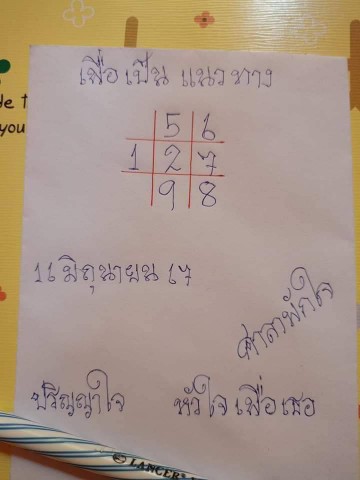 เพื่อเป็น แนวทาง
5 6
1 2 7
9 8
16 มิถุนายน 67
ศาลาพักใจ
ปริญญาใจ หัวใจเพื่อเธอ
LANCER